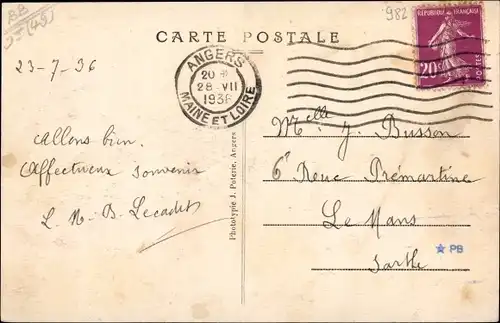 BB
(49)
982
CARTE POSTALE
RÉPUBLIQUE FRANÇAISE
20c
POSTES
ANGERS
20 H
28 - VII
1936
MAINE ET LOIRE
23-7-36
Allons bien.
Affectueux souvenir
L. M. B. Lecadet
Phototypie J. Puterie, Angers
Melle J. Busson
6 Rue Prémartine
Le Mans
Sarthe
PB